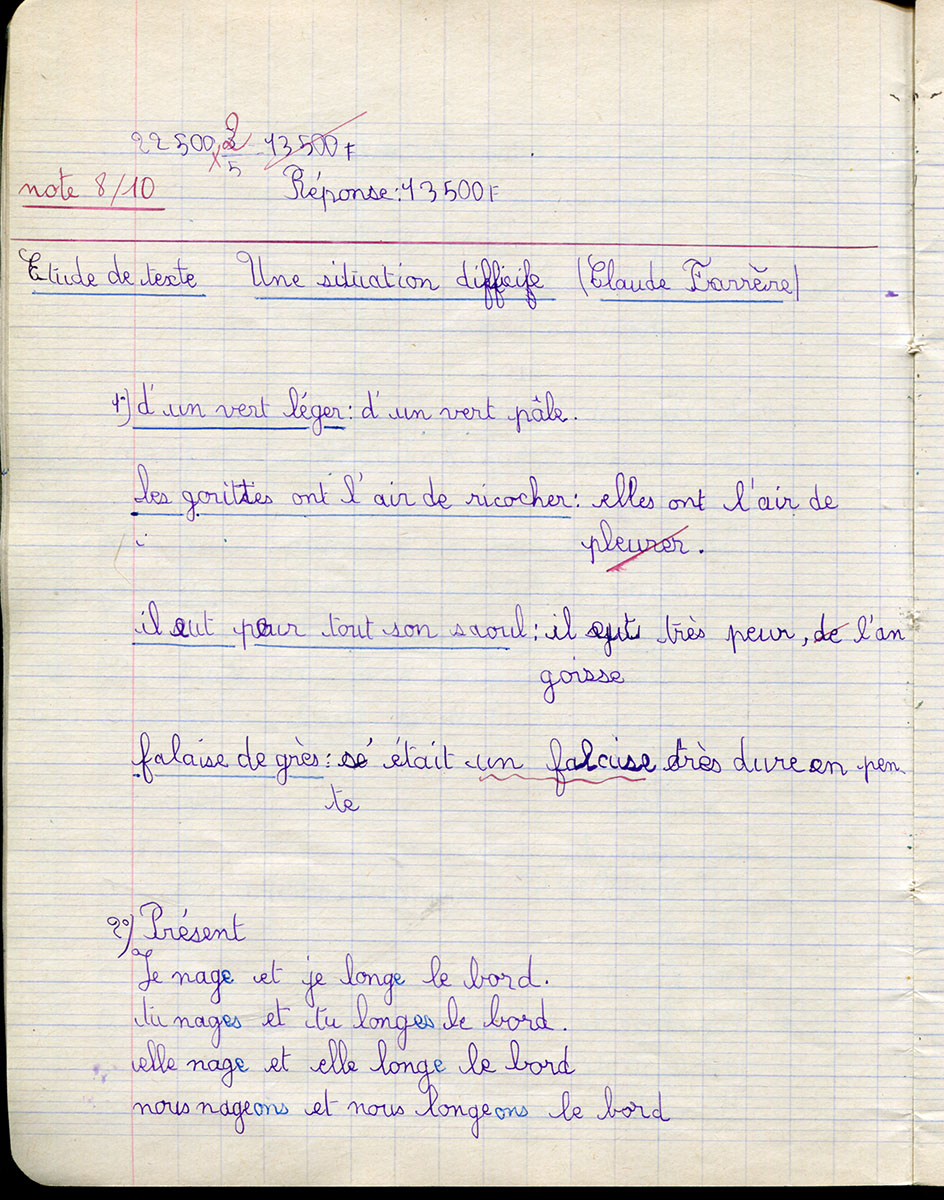 22 500 x 2/5 13 500 F
note 8/10 Réponse: 13 500 F
Etude de texte Une situation difficile (Claude Farrère)
1°) d'un vert léger: d'un vert pâle.
les gouttes ont l'air de ricocher: elles ont l'air de
pleurer.
il eut peur tout son saoul: il eut très peur, de l'an
goisse
falaise de grès: sé était un falaise très dure en pen
te
2°) Présent
Je nage et je longe le bord.
tu nages et tu longes le bord.
elle nage et elle longe le bord
nous nageons et nous longeons le bord